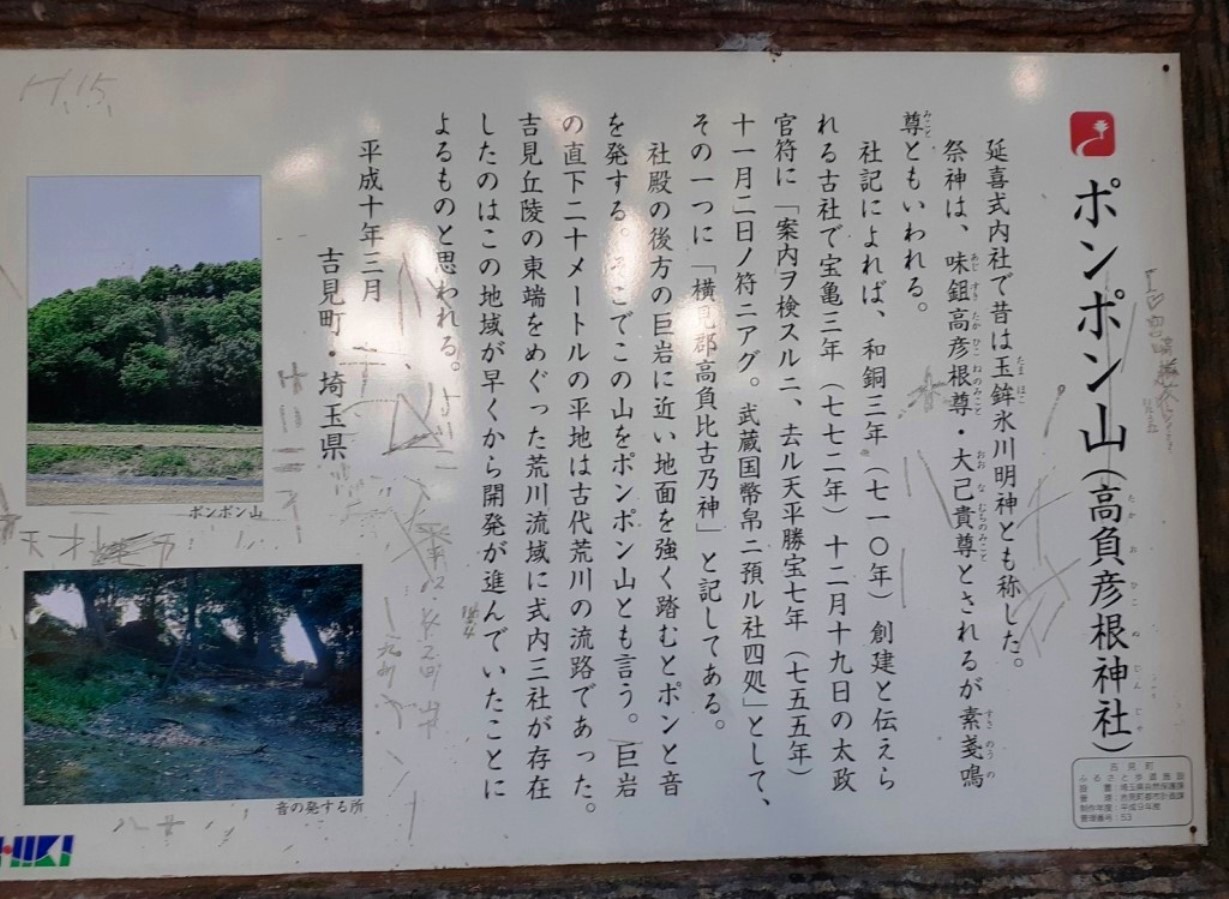 ポンポン山(高負彦根神社)
延喜式内社で昔は玉鉾氷川明神とも称した。
祭神は、味鉏高彦根尊・大己貴尊とされるが素戔嗚
尊ともいわれる。
社記によれば、和銅三年(七一〇年)創建と伝えら
れる古社で宝亀三年(七七二年)十二月十九日の太政
官符に「案内ヲ検スルニ、去ル天平勝宝七年(七五五年)
十一月二日ノ符ニアグ。武蔵国幣帛ニ預ル社四処」として、
その一つに「横見郡高負比古乃神」と記してある。
社殿の後方の巨岩に近い地面を強く踏むとポンと音
を発する。そこでこの山をポンポン山とも言う。巨岩
の直下二十メートルの平地は古代荒川の流路であった。
吉見丘陵の東端をめぐった荒川流域に式内三社が存在
したのはこの地域が早くから開発が進んでいたことに
よるものと思われる。
平成十年三月
吉見町・埼玉県
ポンポン山
音の発する所
吉見町
ふるさと歩道施設
設置:埼玉県自然保護課
管理:吉見町都市計画課
制作年度:平成9年度
管理番号:53
H.15.